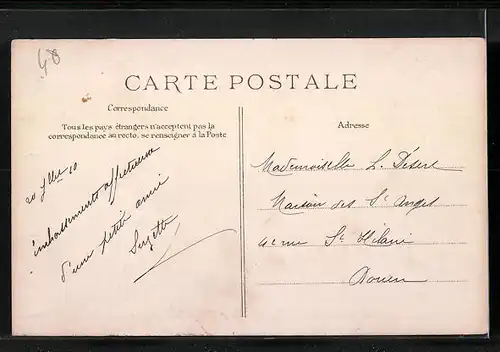 48
CARTE POSTALE
Correspondance
Tous les pays étrangers n'acceptent pas la
correspondance au recto, se renseigner à la Poste
20 10
embrassements affectueux
d'une petite amie
Suzette
Adresse
Mademoiselle L. Désert
Maison des St Anges
rue St Hilaire
Rouen